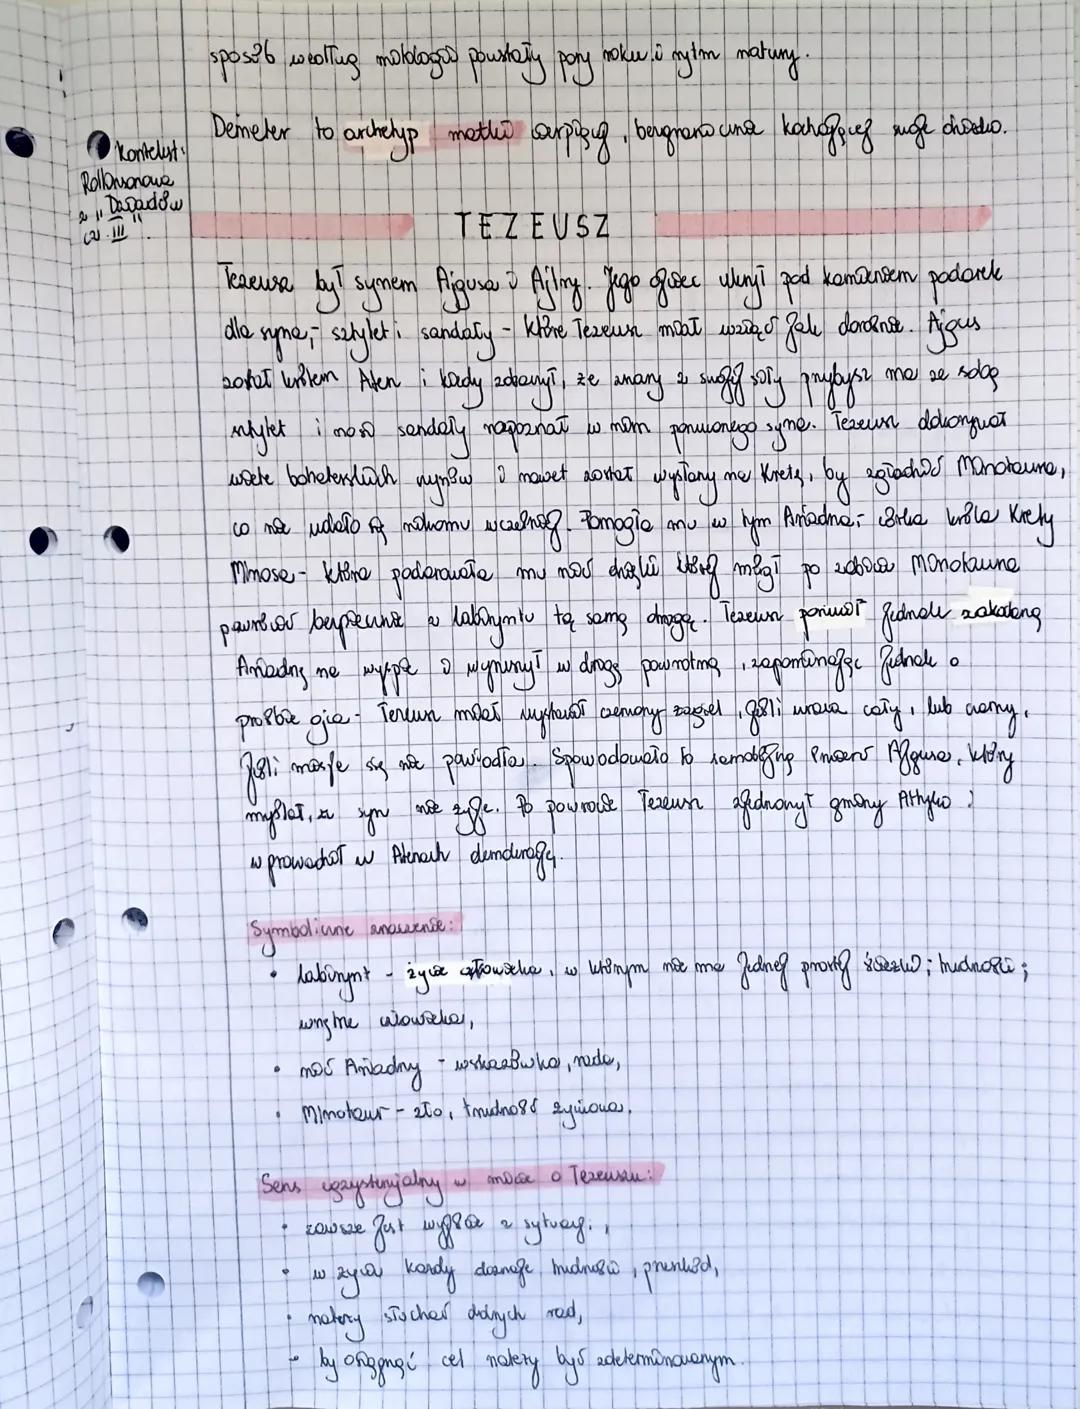 sposób według mitologii powstały pory roku i rytm natury.
Demeter to archetyp matki cierpiącej, bezgranicznie kochającej swoje dziecko.
Kontekst:
Rollisonowa
z "Dziadów"
cz. III
TEZEUSZ
Tezeusz był synem Ajgeusa i Ajtry. Jego ojciec ukrył pod kamieniem podarek
dla syna, - sztylet i sandały - które Tezeusz miał wziąć jak dorośnie. Ajgeus
został królem Aten i kiedy zobaczył, że znany z swojej siły przybysz ma ze sobą
sztylet i nosi sandały rozpoznał w nim porzuconego syna. Tezeusz dokonywał
wiele bohaterskich czynów i nawet został wysłany na Kretę, by zgładzić Minotaura,
co nie udało się nikomu wcześniej. Pomogła mu w tym Ariadna, - córka króla Krety
Minosa - która podarowała mu nić dzięki której mógł po zabiciu Minotaura
powrócić bezpiecznie z labiryntu tą samą drogą. Tezeusz porzucił jednak zakochaną
Ariadnę na wyspie i wyruszył w drogę powrotną, zapominając jednak o
prośbie ojca - Tezeusz miał wystawić czerwony żagiel, jeśli wraca cały, lub czarny,
jeśli misja się nie powiodła. Spowodowało to samobójczą śmierć Ajgeusa, który
myślał, że syn nie żyje. Po powrocie Tezeusz zjednoczył gminy Attyki i
wprowadził w Atenach demokrację.
Symboliczne znaczenie:
• Labirynt - życie człowieka, w którym nie ma jednej prostej ścieżki; trudności;
wnętrze człowieka,
• nić Ariadny - wskazówka, rada,
• Minotaur - zło, trudność życiowa.
Sens egzystencjalny w micie o Tezeuszu:
• zawsze jest wyjście z sytuacji,
• w życiu każdy doznaje trudności, przeszkód,
• należy słuchać dobrych rad,
• by osiągnąć cel należy być zdeterminowanym.